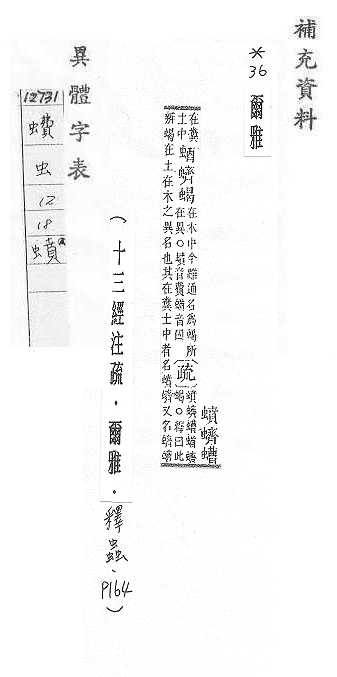 補充資料
*36 爾雅
蟦蠐螬
在糞土中 蝤蠐蝎 在木中今雖通名為蝎所在異○蟦音費蝤音囚 疏 蟦蠐
蝎在土在木之異名也其在糞土中者名蟦蠐又名蠐螬
(十三經注疏.爾雅.釋蟲.P164)
異體字表
12731
虫
12
18
蟦